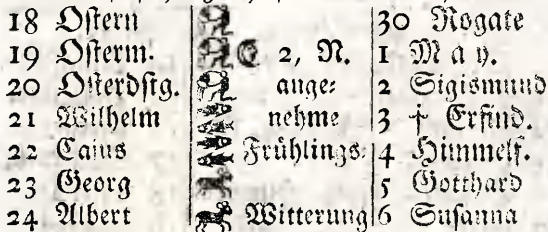 18 Oſtern 30 Rogate
19 Oſterm. C 2, N. 1 May.
20 Oſterdſtg. ange⸗ 2 Sigismund
21 Wilhelm nehme 3 † Erfind.
22 Cajus Frühlings⸗ 4 Himmelf.
23 Georg 5 Gotthard
24 Albert Witterung 6 Suſanna